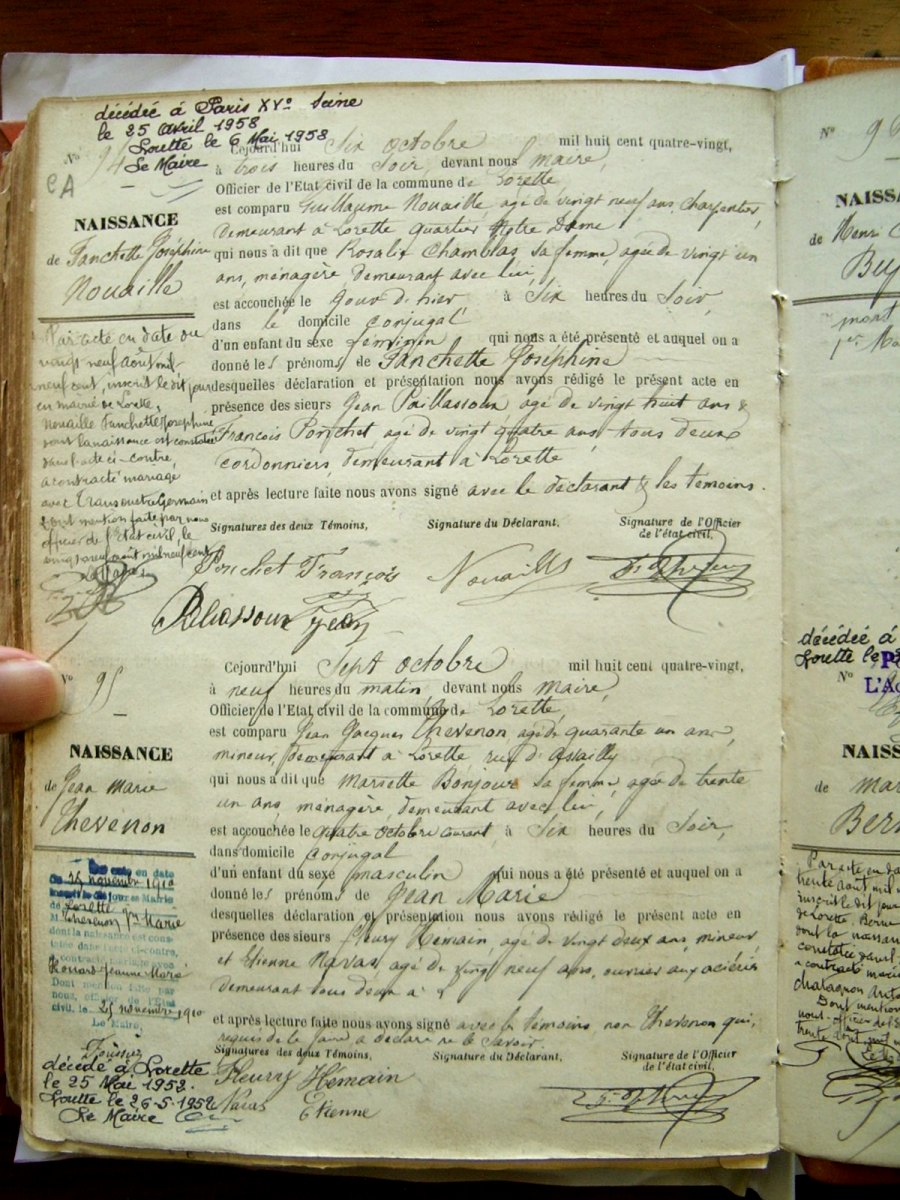 décédée à Paris XVe Seine
le 25 avril 1958
Lorette le 6 Mai 1958
Le Maire
No 94
CA
NAISSANCE
de Fanchette Joséphine
Nouaille
Par acte en date du
vingt neuf août mil
neuf cent, inscrit le dit jour
en mairie de Lorette,
Nouaille Fanchette Joséphine
dont la naissance est constatée
dans l'acte ci-contre,
a contracté mariage
avec Germain
Dont mention faite par nous
officier de l'Etat civil, le
vingt neuf août mil neuf cent
Cejourd'hui Six octobre mil huit cent quatre-vingt,
à trois heures du Soir, devant nous maire,
Officier de l'Etat civil de la commune de Lorette
est comparu Guillaume Nouaille agé de vingt neuf ans, charpentier,
demeurant à Lorette quartier Notre Dame
qui nous a dit que Rosalie Chamblas, sa femme, agée de vingt un
ans, ménagère demeurant avec lui,
est accouchée le jour d'hier à Six heures du Soir,
dans le domicile conjugal
d'un enfant du sexe féminin qui nous a été présenté et auquel on a
donné les prénoms de Fanchette Joséphine
desquelles déclaration et présentation nous avons rédigé le présent acte en
présence des sieurs Jean Paillassoux agé de vingt huit ans &
François Ponchet agé de vingt quatre ans, tous deux
cordonniers, demeurant à Lorette,
et après lecture faite nous avons signé avec le déclarant & les témoins.
Signatures des deux Témoins, Signature du Déclarant. Signature de l'Officier
de l'état civil.
François Nouaille
Jean
No 95
NAISSANCE
de Jean Marie
Thevenon
en date
du 25 novembre 1910
inscrit le dit jour en Mairie
de Lorette
M. Thevenon Jn Marie
dont la naissance est cons-
tatée dans l'acte ci-contre,
a contracté mariage avec
Jeanne
Dont mention faite par
nous, officier de l'Etat
civil, le 25 novembre 1910
Le Maire,
décédé à Lorette
le 25 Mai 1952.
Lorette le 26-5-1952
Le Maire
Cejourd'hui Sept octobre mil huit cent quatre-vingt,
à neuf heures du matin, devant nous maire,
Officier de l'Etat civil de la commune de Lorette,
est comparu Jean Jacques Thevenon agé de quarante un ans,
mineur, demeurant à Lorette rue d'Assailly
qui nous a dit que Mariette Bonjour sa femme, agée de trente
un ans, ménagère, demeurant avec lui,
est accouchée le quatre octobre courant, à Six heures du Soir,
dans domicile conjugal
d'un enfant du sexe masculin qui nous a été présenté et auquel on a
donné les prénoms de Jean Marie
desquelles déclaration et présentation nous avons rédigé le présent acte en
présence des sieurs Fleury Hémain, agé de vingt deux ans, mineur
et Etienne Navas, agé de vingt neuf ans, ouvrier aux aciéries
demeurant tous deux à L
et après lecture faite nous avons signé avec les témoins, non Thevenon qui,
requis de le faire a déclaré ne le savoir.
Signatures des deux Témoins, Signature du Déclarant. Signature de l'Officier
de l'état civil.
Fleury Hémain
Navas Etienne
No 96
NAISSANCE
de Henri
mort
décédée à
Lorette le
No
NAISSANCE
de
Par acte en da
trente août mil
inscrit le dit jour
de Lorette,
dont la naissan
constatée dans l'
a contracté mari
Dont mention